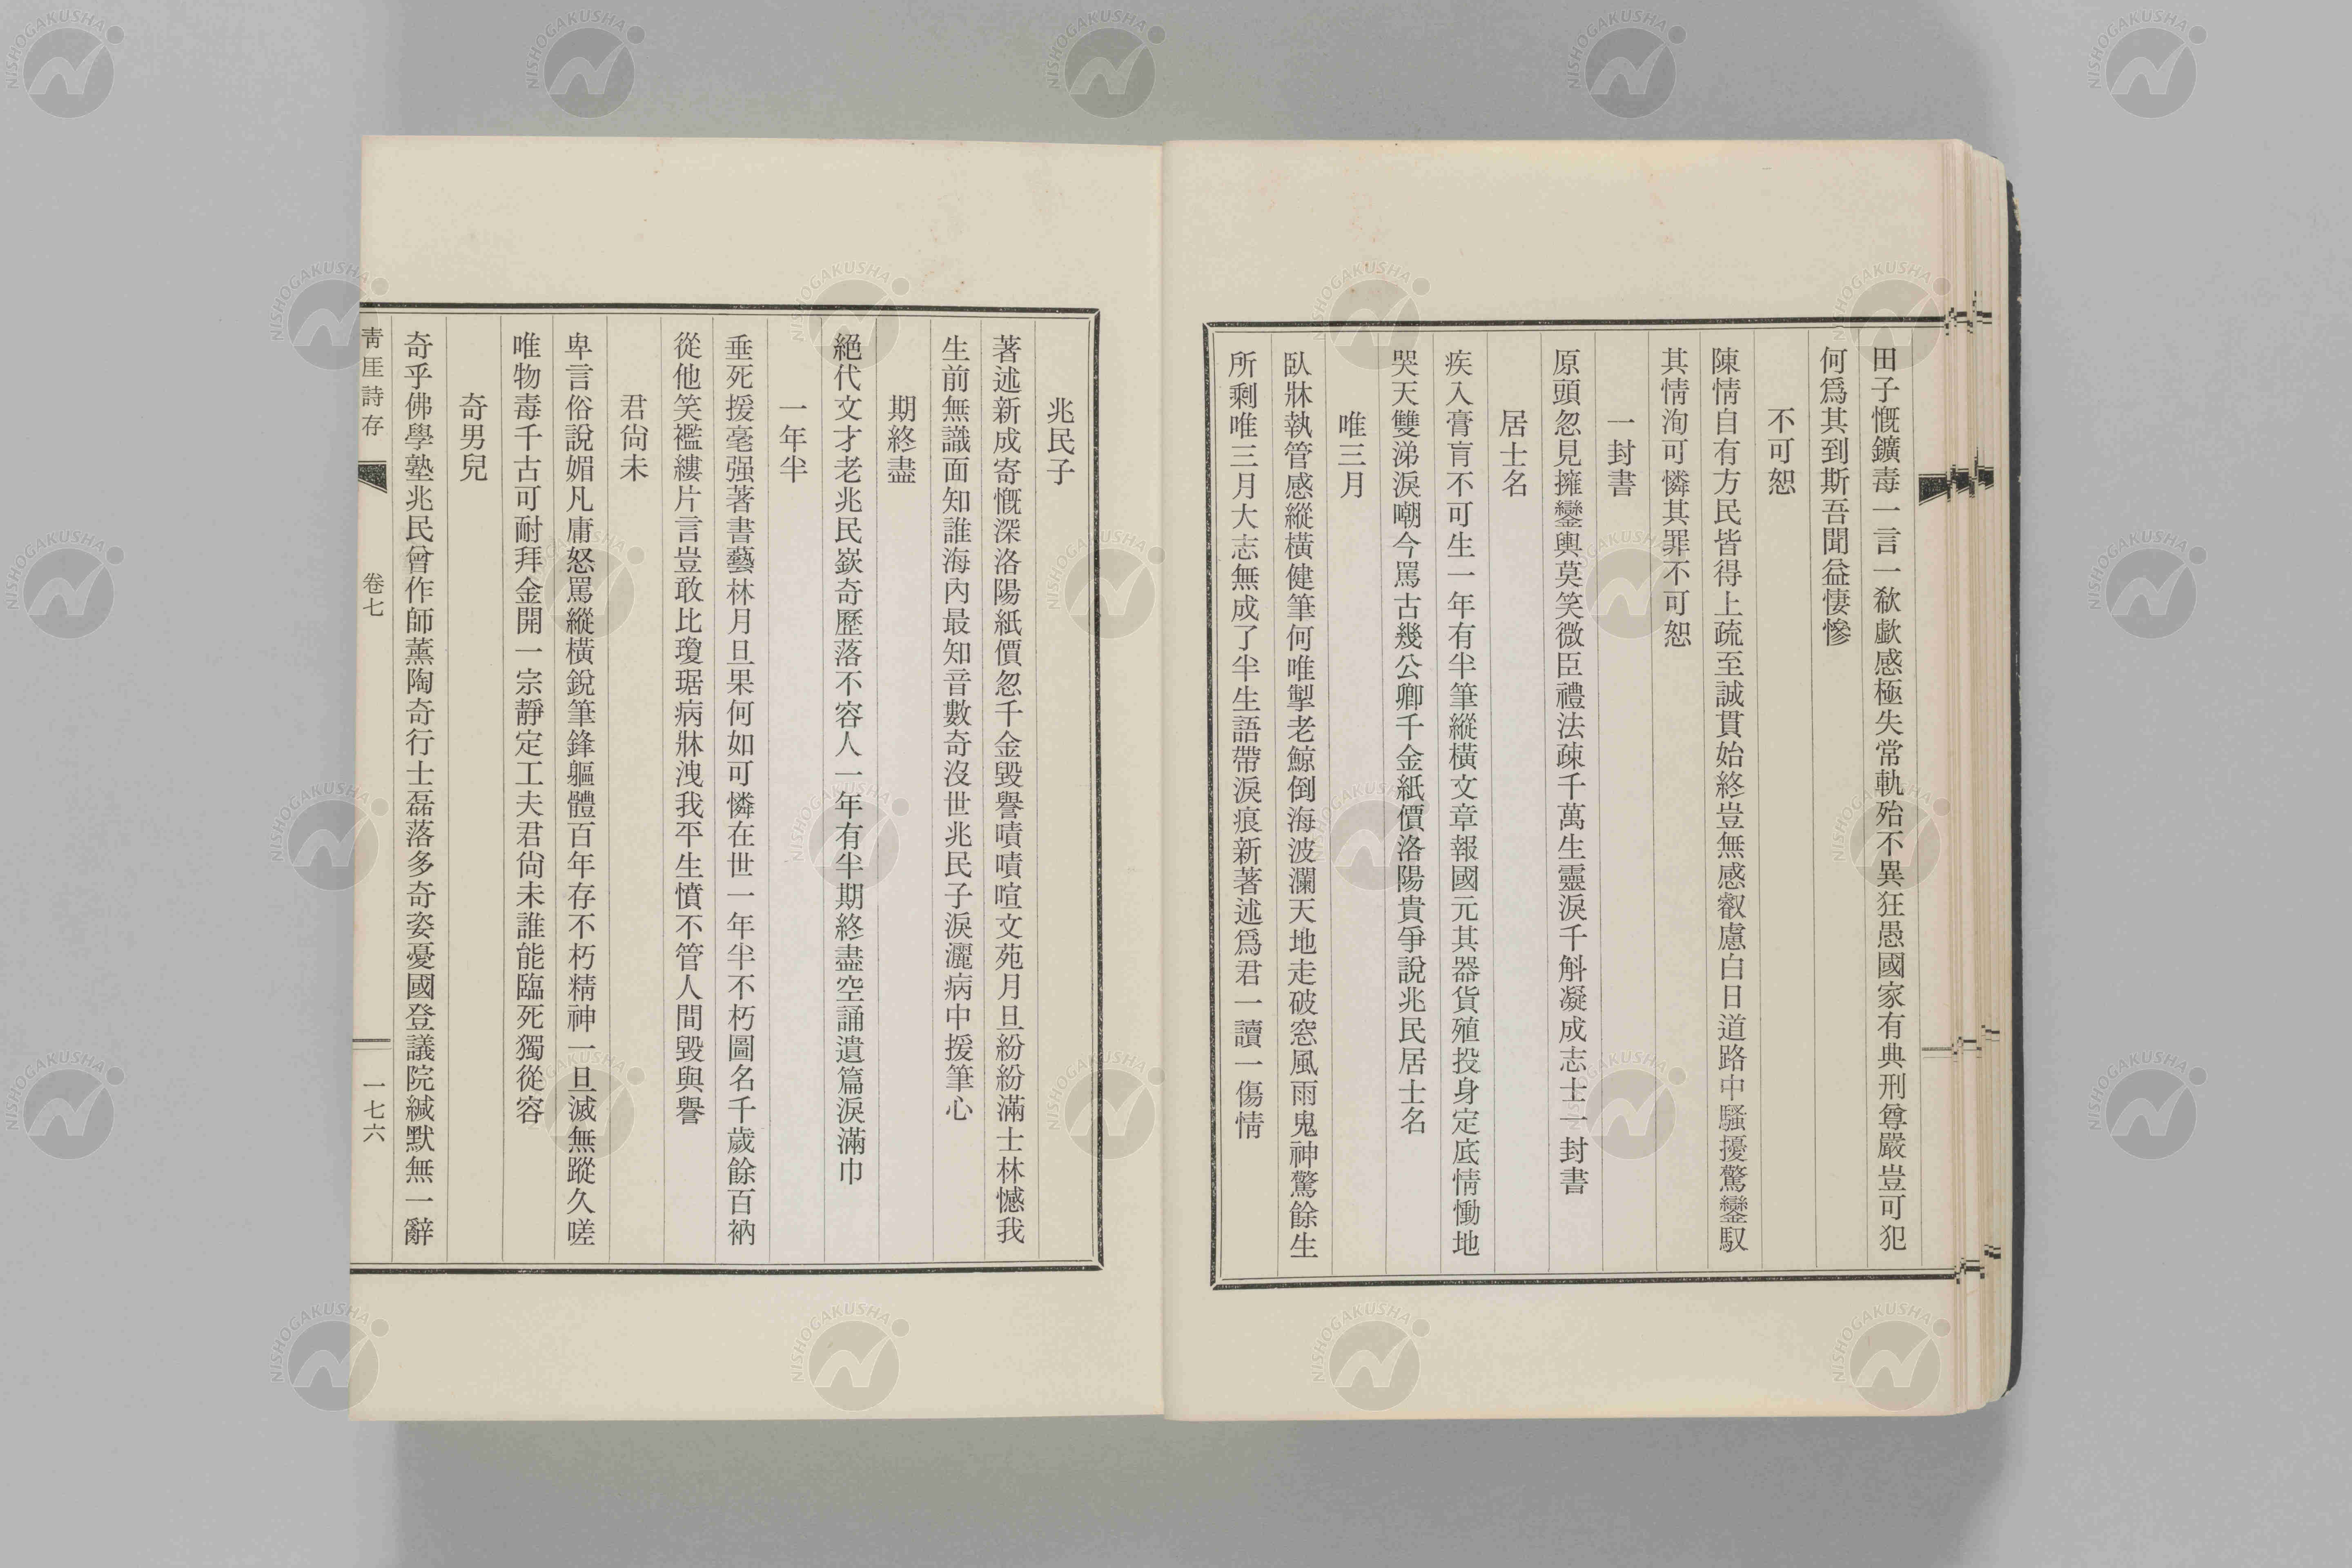 田子慨鑛毒一言一欷歔感極失常軌殆不異狂愚國家有典刑尊嚴豈可犯
何爲其到斯吾聞益悽慘
不可恕
陳情自有方民皆得上疏至誠貫始終豈無感叡慮白日道路中騷擾驚鑾馭
其情洵可憐其罪不可恕
一封書
原頭忽見擁鑾輿莫笑微臣禮法疎千萬生靈淚千斛凝成志士一封書
居士名
疾入膏肓不可生一年有半筆縱橫文章報國元其器貨殖投身定底情慟地
哭天雙涕淚嘲今罵古幾公卿千金紙價洛陽貴爭說兆民居士名
唯三月
臥牀執管感縱橫健筆何唯掣老鯨倒海波瀾天地走破窓風雨鬼神驚餘生
所剩唯三月大志無成了半生語帶淚痕新著述爲君一讀一傷情
兆民子
著述新成寄慨深洛陽紙價忽千金毀譽嘖嘖喧文苑月旦紛紛滿士林憾我
生前無識面知誰海內最知音數奇沒世兆民子淚灑病中援筆心
期終盡
絕代文才老兆民嶔奇歷落不容人一年有半期終盡空誦遺篇淚滿巾
一年半
垂死援毫强著書藝林月旦果何如可憐在世一年半不朽圖名千歲餘百衲
從他笑襤縷片言豈敢比瓊琚病牀洩我平生憤不管人間毀與譽
君尙未
卑言俗說媚凡庸怒罵縱橫銳筆鋒軀體百年存不朽精神一旦滅無蹤久嗟
唯物毒千古可耐拜金開一宗靜定工夫君尙未誰能臨死獨從容
奇男兒
奇乎佛學塾兆民曾作師薰陶奇行士磊落多奇姿憂國登議院緘默無一辭
靑厓詩存
卷七
一七六
NISHOGAKUSHA